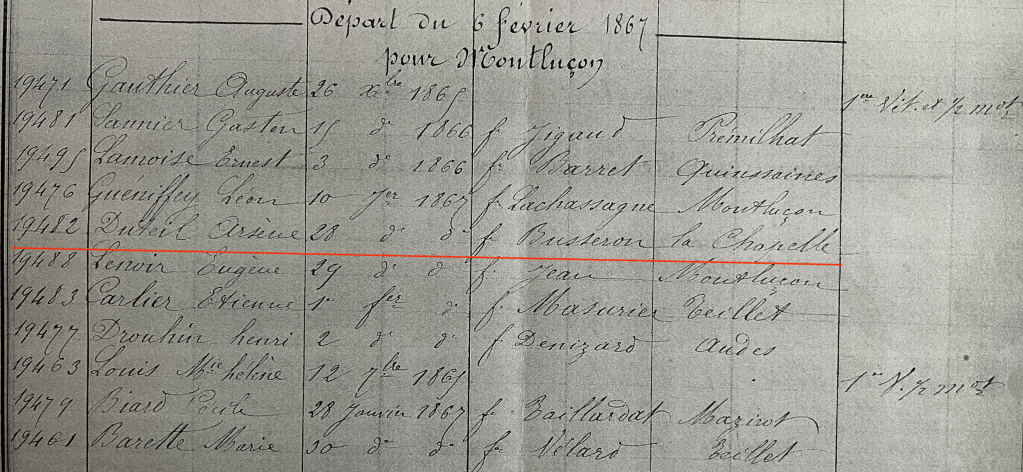 Départ du 6 février 1867
pour Montluçon
19471 Gauthier Auguste 26 Xbre 1865 1ere Vit. et 1/2 mot
19481 Lannier Gaston 15 do 1866 fe Jigaud Prémilhat
19495 Lamoise Ernest 3 do 1866 fe Barret Quinssaines
19476 Guéniffey Léon 10 Jer 1867 fe Lachassagne Montluçon
19482 Duteil Arsène 28 do do fe Busseron la Chapelle
19488 Lenoir Eugène 29 do d fe Jean Montluçon
19483 Carlier Etienne 1er fer d fe Masurier Teillet
19477 Drouhin henri 2 do do f Denizard Audes
19463 Louis Mie hélène 12 7bre 1865 1re V. 1/2 mot
19479 Biard Cécile 28 Janvier 1867 fe Taillardat Mazirot
19461 Barette Marie 30 do do fe Vélard Teillet